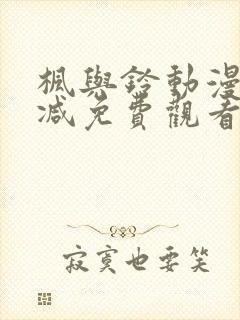 楓與鈴動漫
减免費觀看
寂寞也要笑